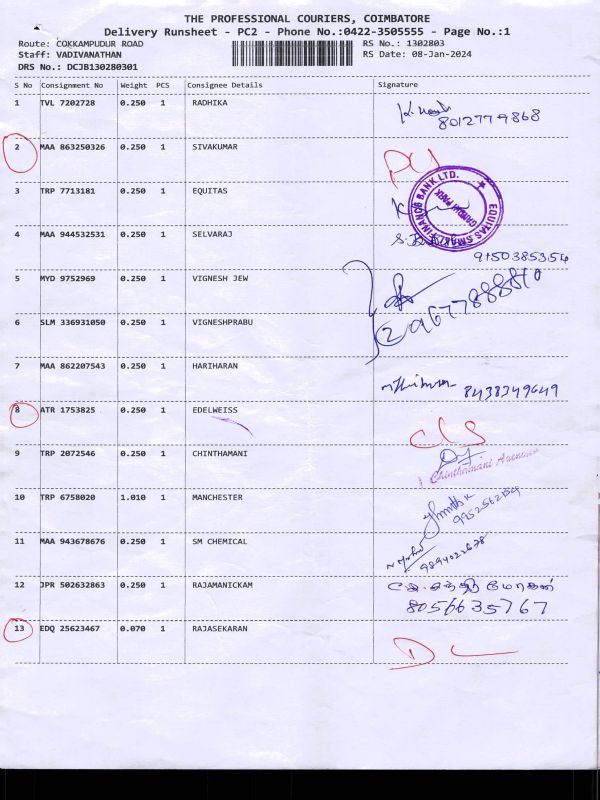 THE PROFESSIONAL COURIERS, COIMBATORE
Delivery Runsheet - PC2 - Phone No.:0422-3505555 - Page No.:1
Route: COKKAMPUDUR ROAD RS No.: 1302803
Staff: VADIVANATHAN RS Date: 08-Jan-2024
DRS No.: DCJB130280301
S No Consignment No Weight PCS Consignee Details Signature
1 TVL 7202728 0.250 1 RADHIKA
8012779868
2 MAA 863250326 0.250 1 SIVAKUMAR
3 TRP 7713181 0.250 1 EQUITAS
EQUITAS SMALL FINANCE BANK LTD.
GANDHI PARK
4 MAA 944532531 0.250 1 SELVARAJ
9150385354
5 MYD 9752969 0.250 1 VIGNESH JEW
6 SLM 336931050 0.250 1 VIGNESHPRABU
7 MAA 862207543 0.250 1 HARIHARAN
8438349649
8 ATR 1753825 0.250 1 EDELWEISS
9 TRP 2072546 0.250 1 CHINTHAMANI
10 TRP 6758020 1.010 1 MANCHESTER
11 MAA 943678676 0.250 1 SM CHEMICAL
12 JPR 502632863 0.250 1 RAJAMANICKAM
8056635767
13 EDQ 25623467 0.070 1 RAJASEKARAN